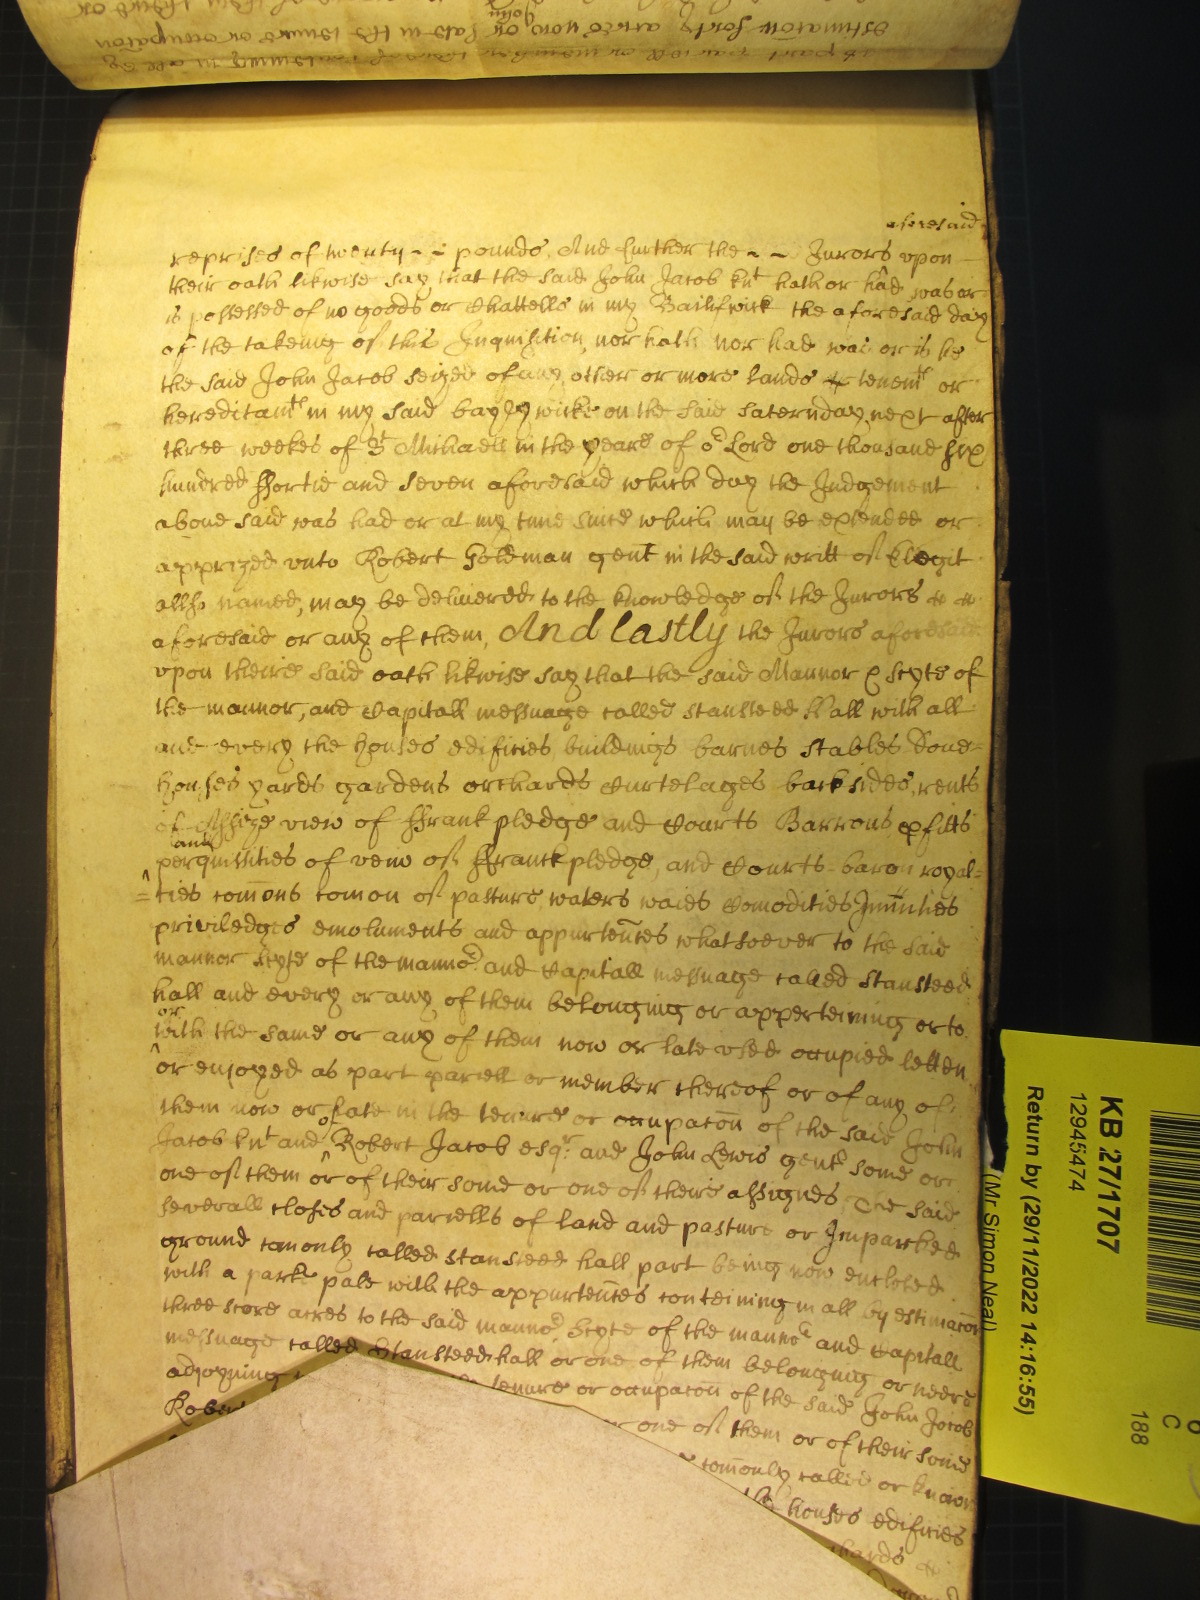 aforesaid
reprises of twenty ~ ~ pounds, And further the ~ ~ Jurors upon
their oath likwise say that the said John Jacob knt hath or had was or
is possessed of no goods or Chattells in my Bailifwick the aforesaid day
of the takeing of this Inquisition, nor hath nor had was or is he
the said John Jacob seized of any other or more lands & tenemts or
hereditamts in my said baylywicke on the said saternday next after
three weekes of St Michaell in the yeare of or Lord one thousand six
hundred ffortie and seven aforesaid which day the Judgement
above said was had or at my time since which may be extended or
apprized unto Robert Coleman gent in the said writt of Elegit
allso named, may be delivered to the knowledge of the Jurors & &
aforesaid or any of them, And lastly the Jurors aforesaid
upon theire said oath likwise say that the said Mannor & scyte of
the mannor, and Capitall messuage called stansteed Hall with all
and every the houses edificies buildings barnes stables Dove=
houses yards gardens orchards Curtelages backsides, rents
of Assize view of ffrankpledge and Courts Barrons pfitts
and
perquissities of veiw of ffranckpledge, and Courts-baron royal=
=ties comons comon of pasture waters waies Comodities Imunities
priviledges emoluments and appurtences whatsoever to the said
mannor scyte of the mannor and Capitall messuage called stansteed
hall and every or any of them belonging or apperteining or to
or
with the same or any of them now or late used occupied letten
or enjoyed as part parcell or member thereof or of any of
them now or late in the tenure or occupacon of the said John
of
Jacob knt and Robert Jacob esqr and John Lewis gent some or
one of them or of their some or one of theire assignes, The said
severall closes and parcells of land and pasture or Imparked
ground comonly called stansteed hall part being now enclosed
with a parke pale with the appurtences conteining in all by estimacon
three score acres to the said mannor scyte of the mannor and Capitall
messuage called Stansteed hall or one of them belonging or neere
adjoyning tenure or occupacon of the said John Jacob
Robert one of them or of their some
comonly called or knowne
houses edificies
KB 27/1707
12945474
Return by (29/11/2022 14:16:55)
(Mr Simon Neal)
188
C